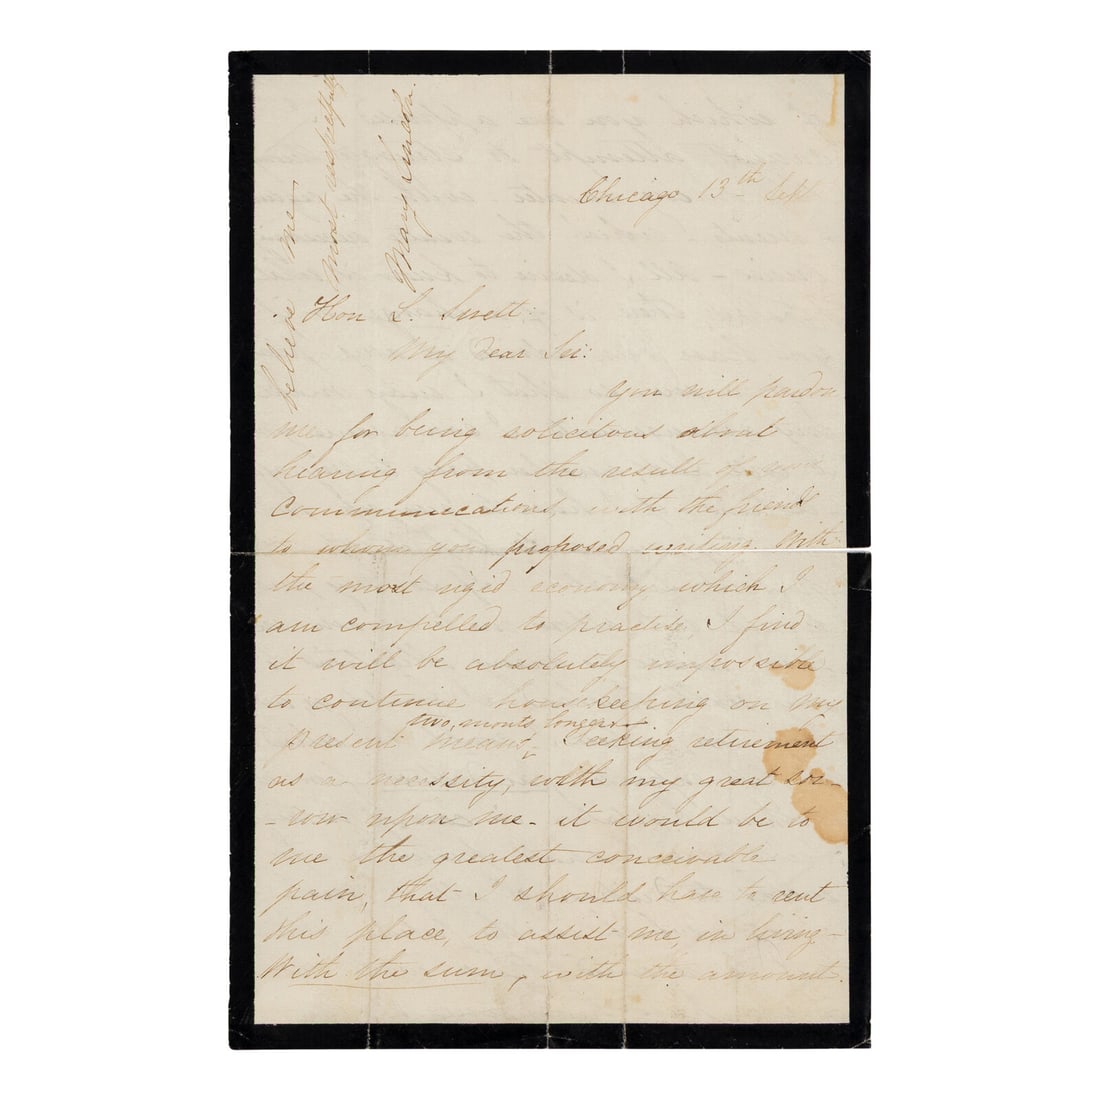 Chicago 13th Sept
Hon L. Swett:
My Dear Sir:
You will pardon
me for being solicitous about
hearing from the result of your
communications, with the friend
to whom you proposed writing With
the most rigid economy which I
am compelled to practise, I find
it will be absolutely impossible
to continue housekeeping on my
present means two, monts longer - Seeking retirement
as a necessity, with my great sor-
-row upon me - it would be to
me the greatest conceivable
pain, that I should have to rent
this place, to assist me, in living -
With the sum, with the amount
believe me
most respectfully
Mary Lincoln.